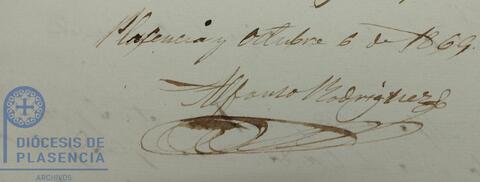 Plasencia y Octubre 6 de 1869.
Alfonso Rodriguez
DIÓCESIS DE
PLASENCIA
ARCHIVOS